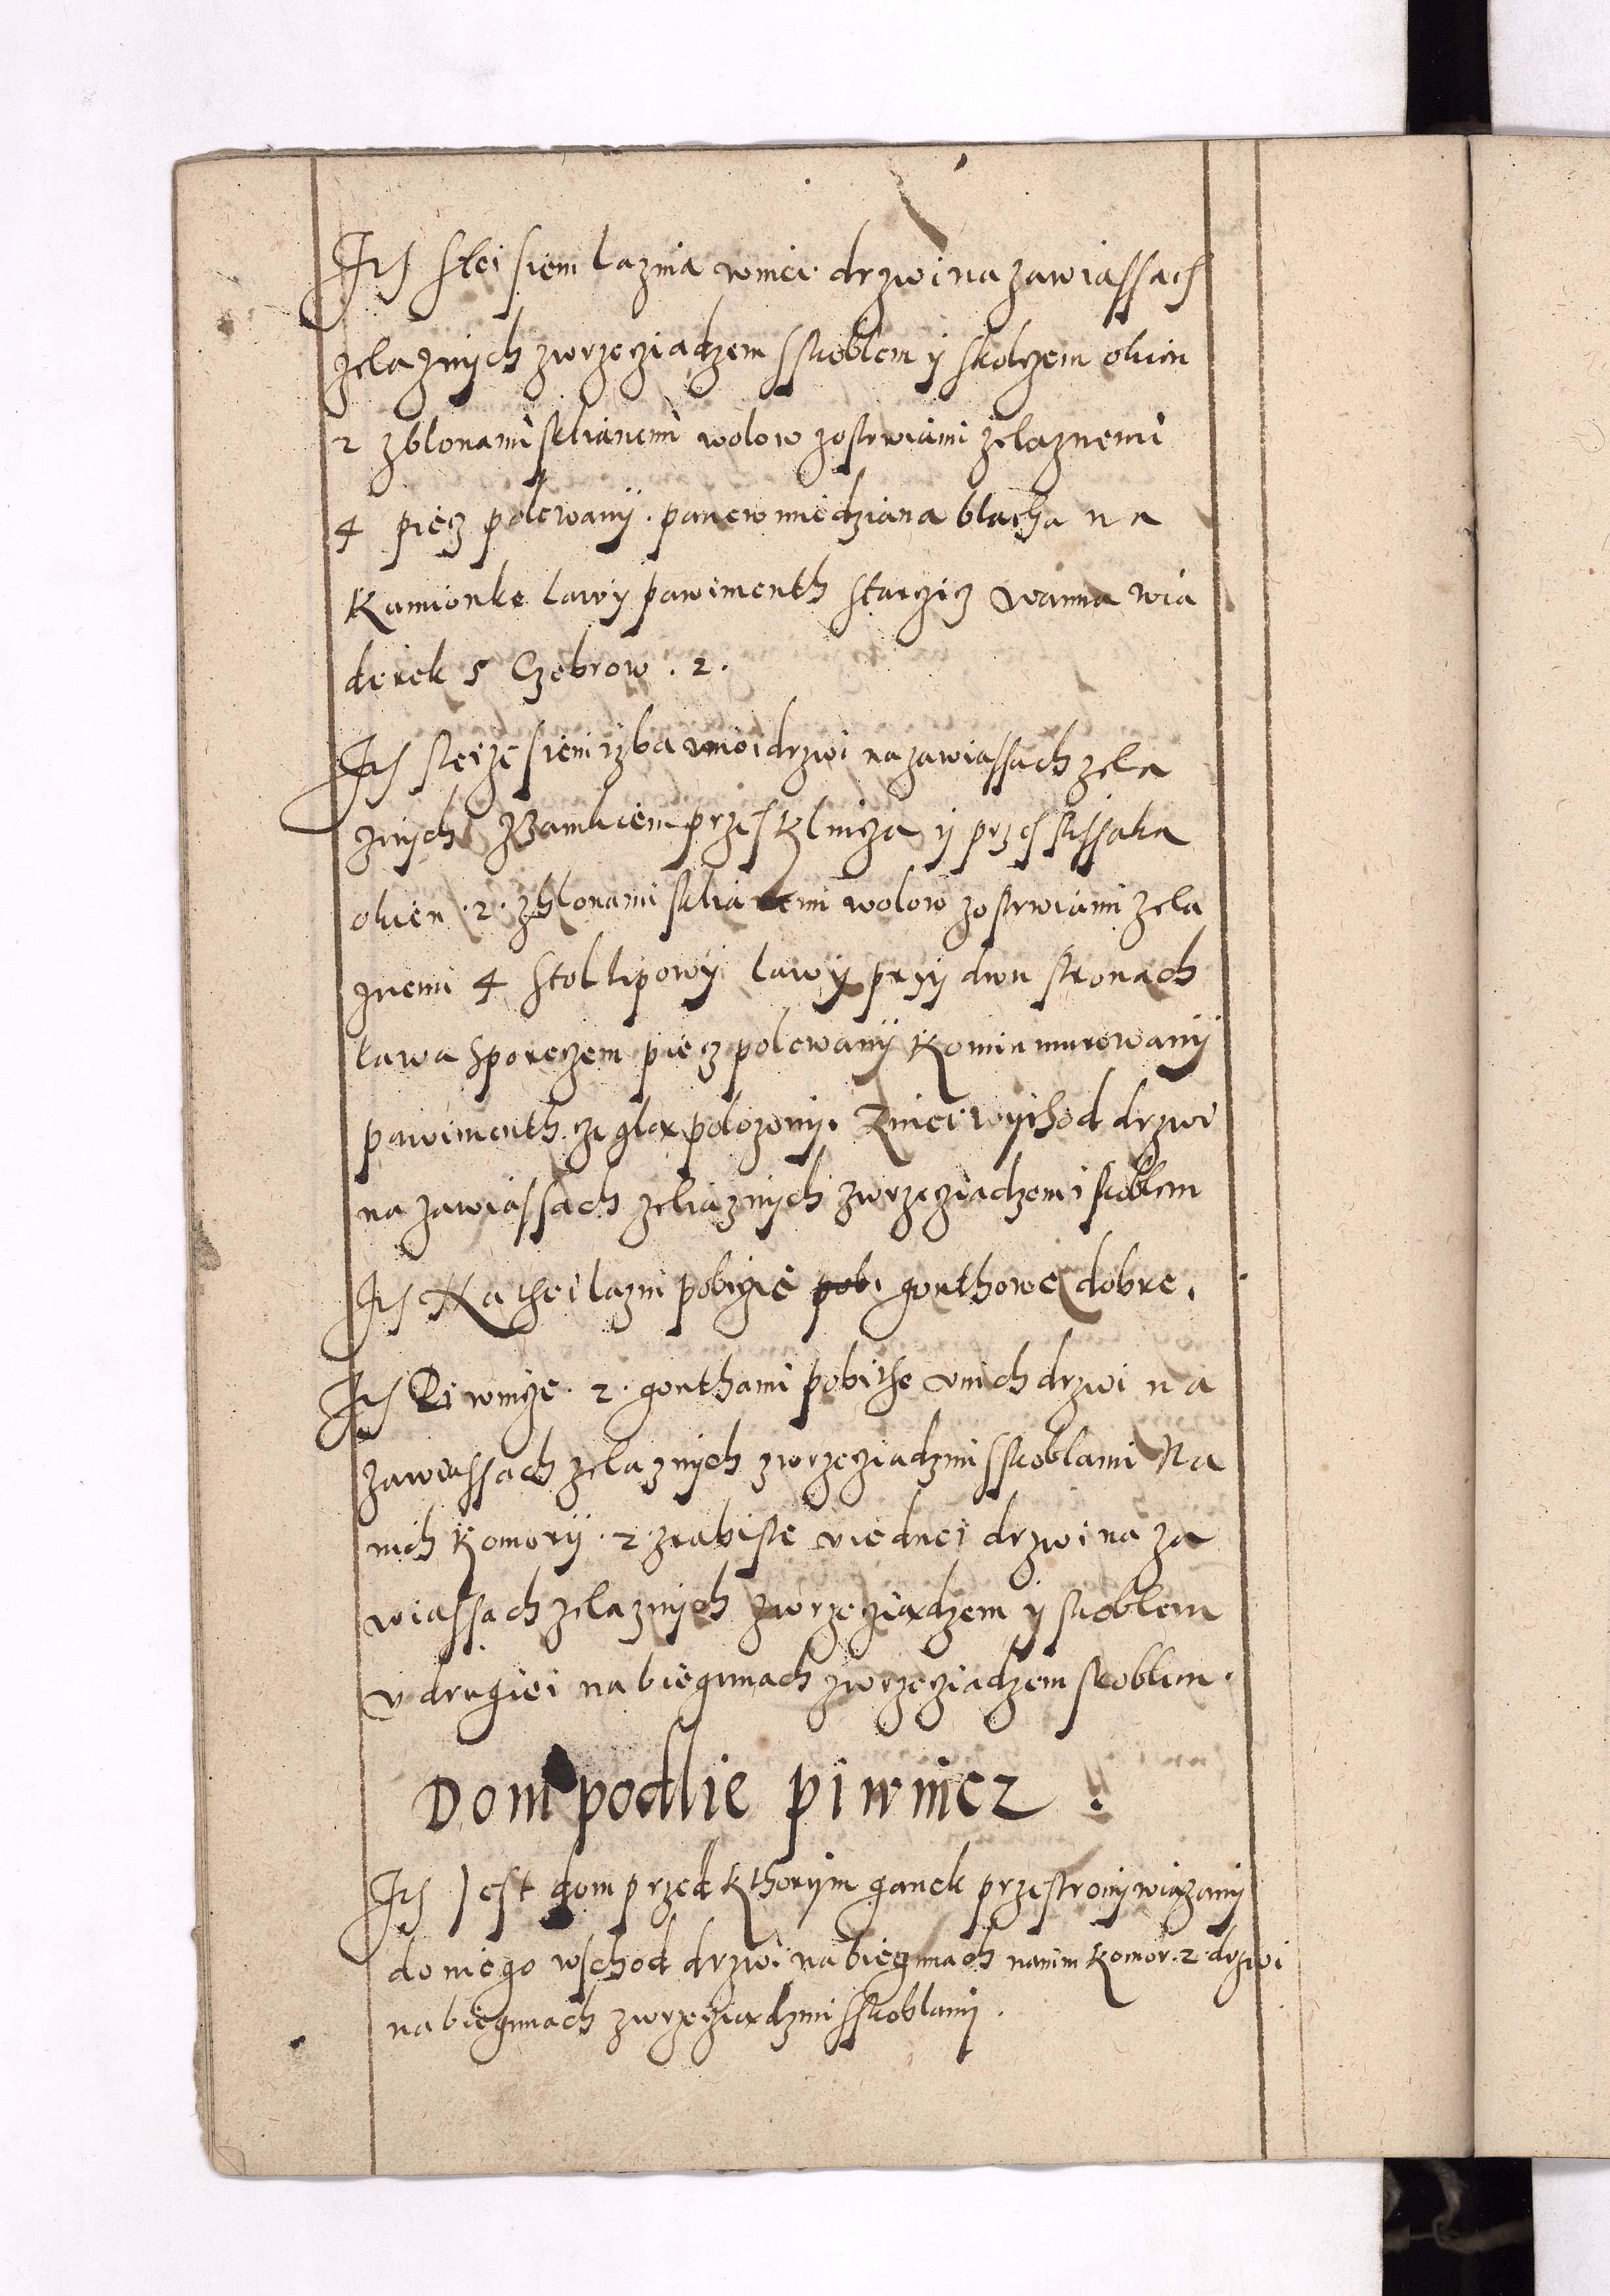 Its Stei sieni laznia wniei drzwi na zawiassach
zelaznych zwrzecziadzem sskoblem y skolczem okien
2 zblonami sklianemi wolow zostrwiami zelaznemi
4 piecz polewany. panew miedziana blacha na
Kamionke lawy pawimenth starczicz wanna wia
derek 5 Czebrow . 2 .
Its steize sieni izba vniei drzwi na zawiassach zela
znych Zzamkiem przes klucza y przes
okien .2. zblonami sklianemi wolow zostrwiami zela
znemi 4 stol lipowy lawy przy dwu stronach
lawa sporeczem piecz polewany Komin murowany
pawimenth czeglax polozony. Zniei wychod drzwi
na zawiassach zeliaznych zwrzecziadzem i skoblem
Its Na thei lazni pobiczie pobi gonthowe dobre.
Its Piwnicze . 2 . gonthami pobithe vnich drzwi na
zawiassach zelaznych zwrzecziadzmi sskoblami Na
nich Komory . 2 zrabiste viednei drzwi na za
wiassach zelaznych zwrzecziadzem y skoblem
v drugiei na biegunach zwrzecziadzem skoblem.
Dom podlie piwnicz .
Its Jest dom przed Kthorym ganek przestrony wiazany
do niego wschod drzwi na biegunach nanim Komor . 2 . drzwi
na biegunach zwrzecziadzmi sskoblamy .